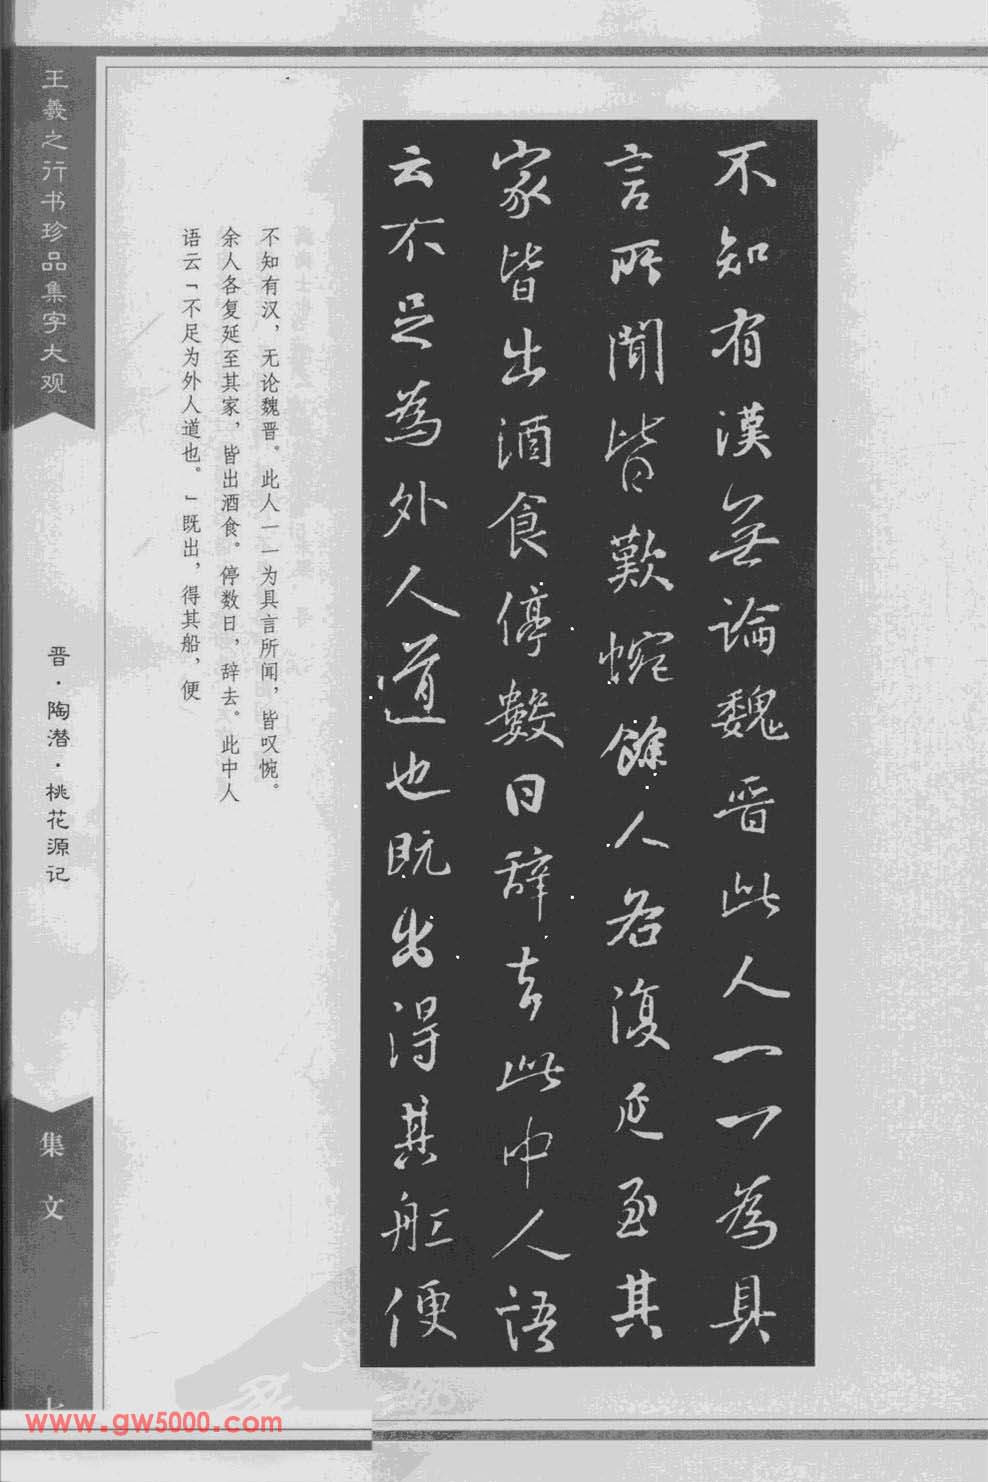 不知有漢無論魏晋此人一一為具
言所聞皆歎惋餘人各復延至其
家皆出酒食停數日辞去此中人語
云不足為外人道也既出得其舡便
不知有汉，无论魏晋。此人一一为具言所闻，皆叹惋。
余人各复延至其家，皆出酒食。停数日，辞去。此中人
语云「不足为外人道也。」既出，得其船，便
王羲之行书珍品集字大观
晋·陶潜·桃花源记
集文
www.gw5000.com